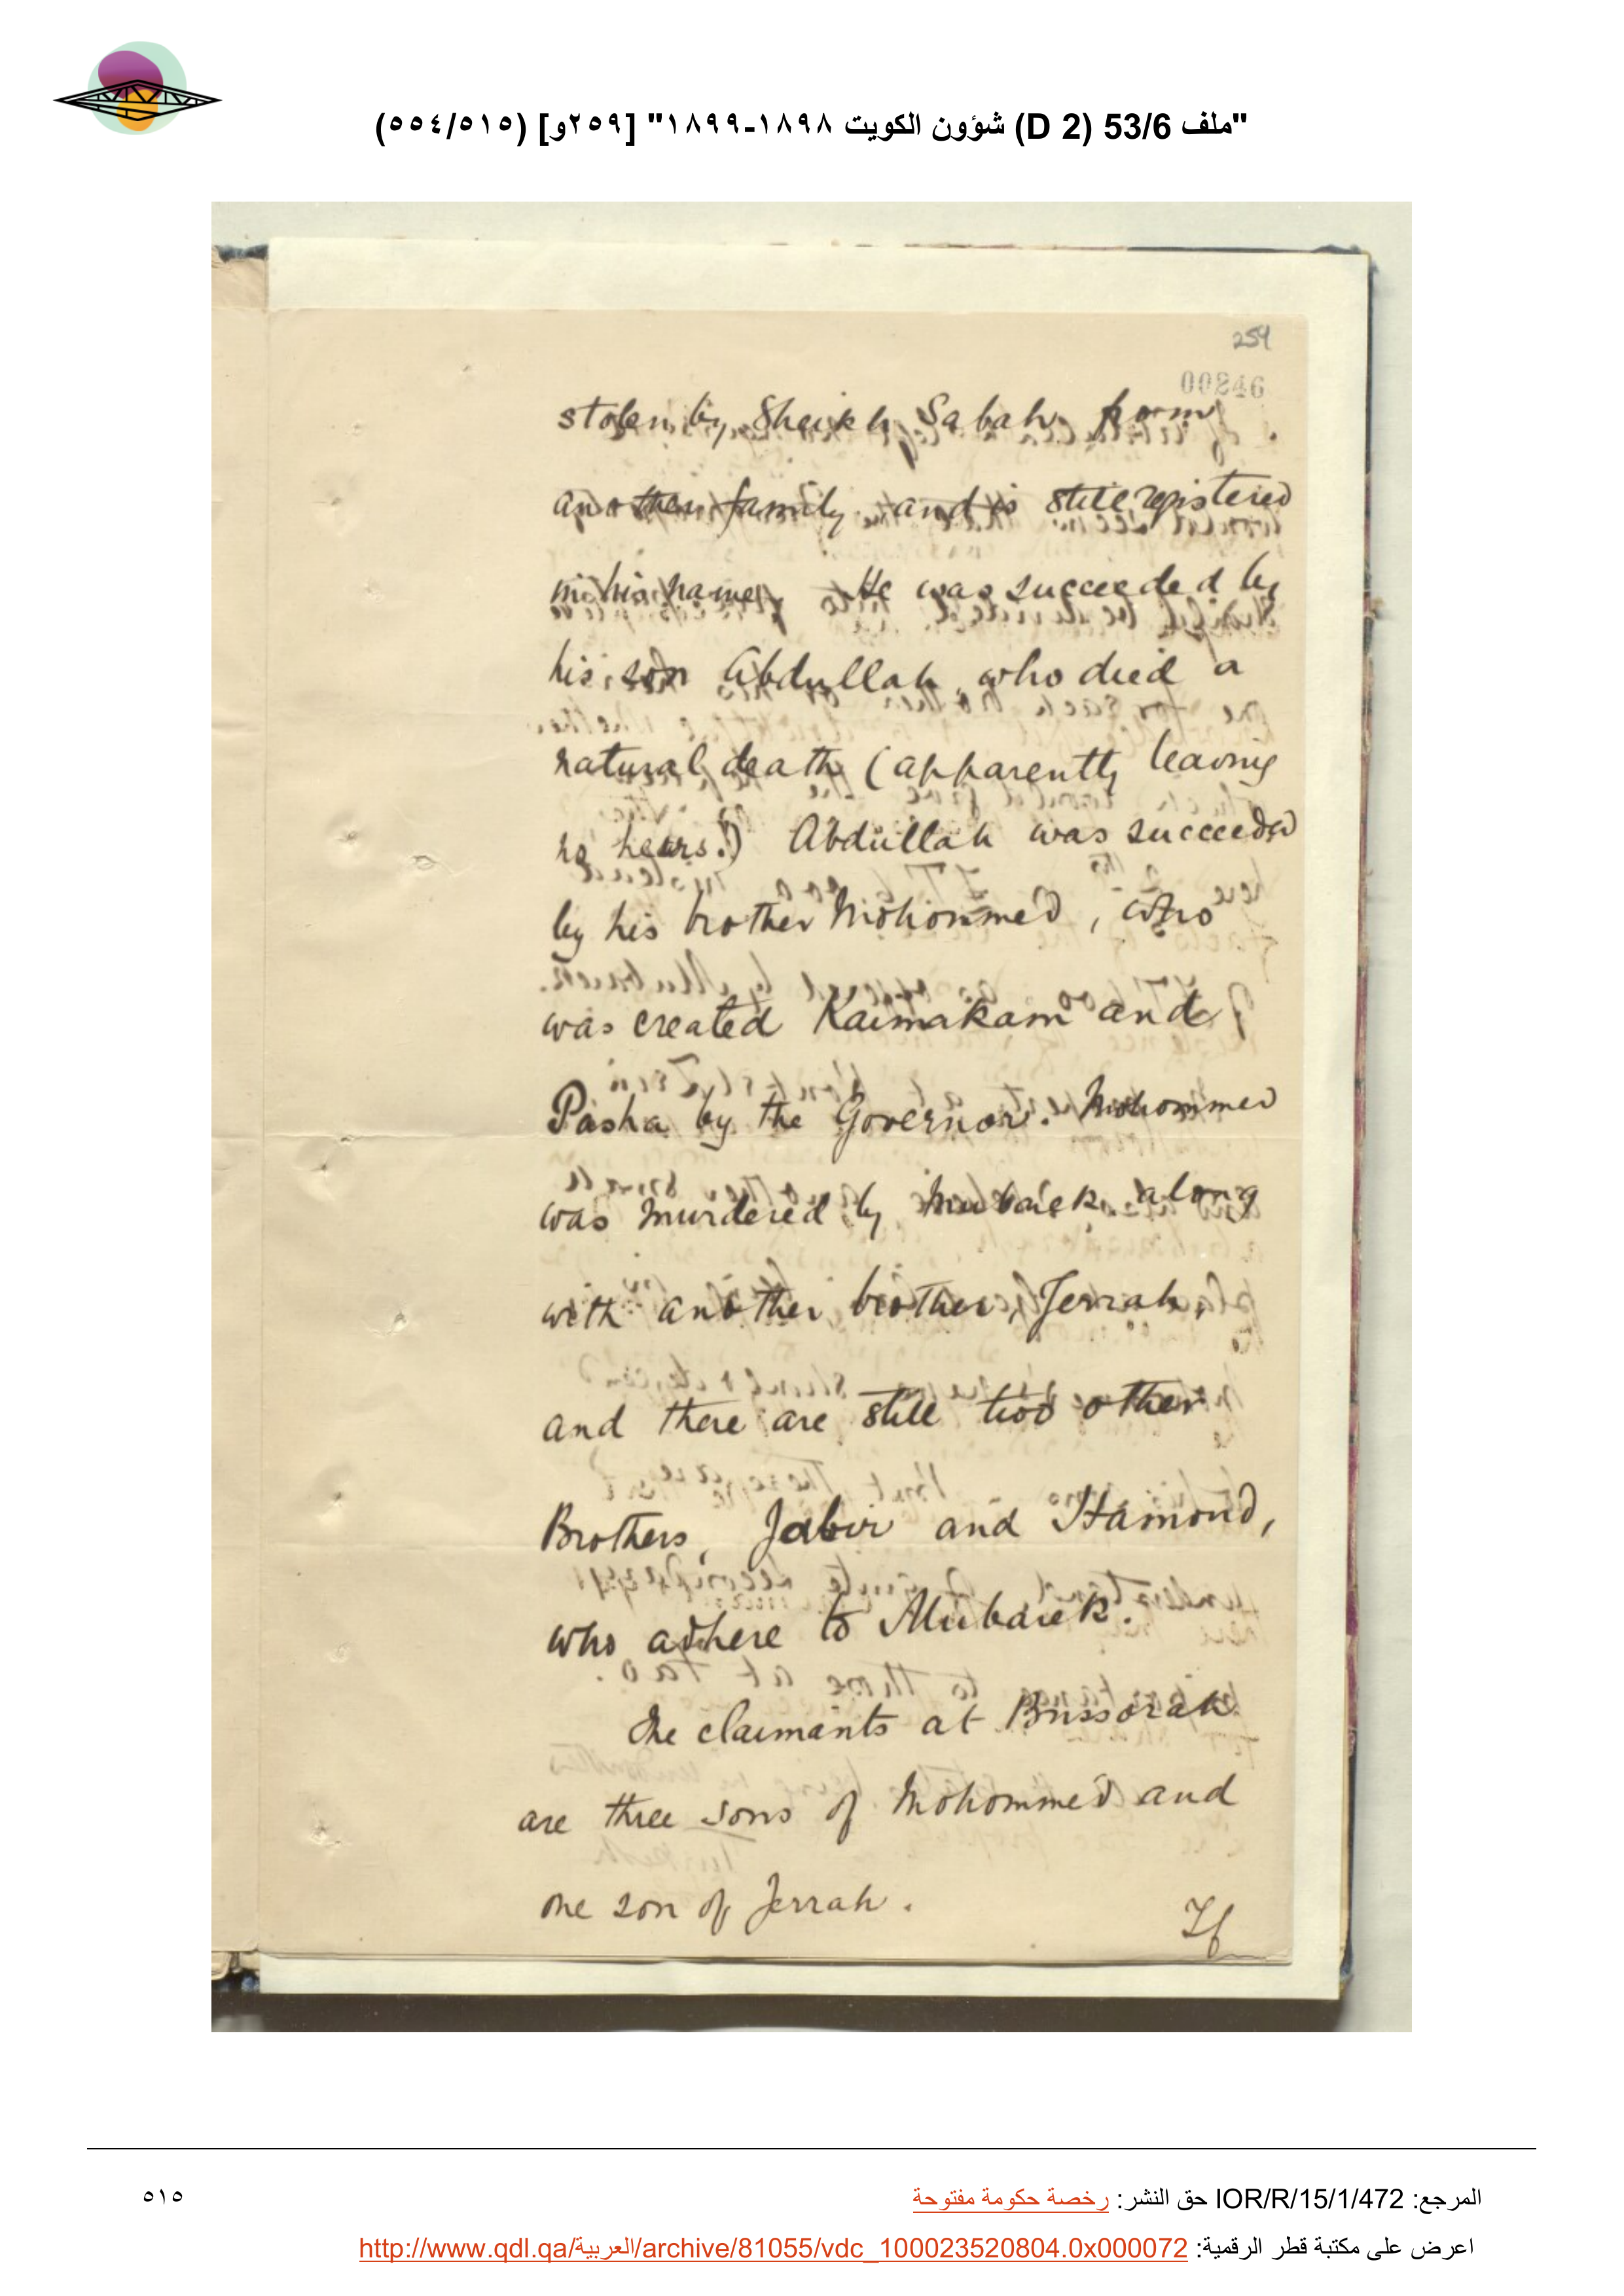 "ملف 53/6 (D 2) شؤون الكويت ١٨٩٨-١٨٩٩" [٢٥٩و] (٥١٥/٥٥٤)
259
00246
stolen by Sheikh Sabah from
another family and is still registered
in his name. He was succeeded by
his son Abdullah, who died a
natural death (apparently leaving
no heirs.) Abdullah was succeeded
by his brother Mohommed, who
was created Kaimakam and
Pasha by the Governor. Mohommed
was murdered by Mubarek along
with another brother, Jerrah,
and there are still two other
Brothers, Jabir and Hamoud,
who adhere to Mubarek.
The claimants at Bussorah
are three sons of Mohommed and
one son of Jerrah.
If
المرجع: IOR/R/15/1/472 حق النشر: رخصة حكومة مفتوحة
٥١٥
اعرض على مكتبة قطر الرقمية: http://www.qdl.qa/العربية/archive/81055/vdc_100023520804.0x000072